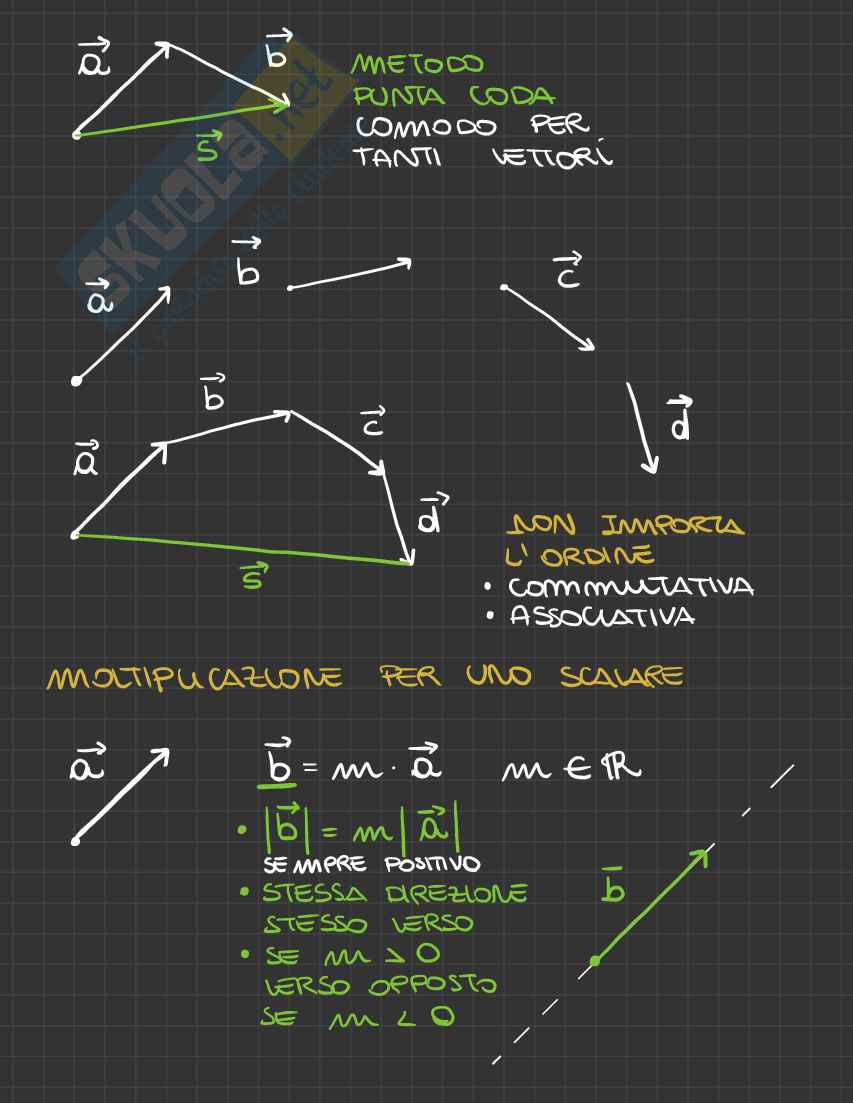 a⃗
b⃗
s⃗
METODO
PUNTA CODA
COMODO PER
TANTI VETTORI
SKUOLA.net
a⃗
b⃗
c⃗
d⃗
a⃗
b⃗
c⃗
d⃗
s⃗
NON IMPORTA
L'ORDINE
• COMMUTATIVA
• ASSOCIATIVA
MOLTIPLICAZIONE PER UNO SCALARE
a⃗
b⃗ = m · a⃗ m ∈ ℝ
• |b⃗| = m |a⃗|
SEMPRE POSITIVO
• STESSA DIREZIONE
STESSO VERSO
• SE m > 0
VERSO OPPOSTO
SE m < 0
b̄